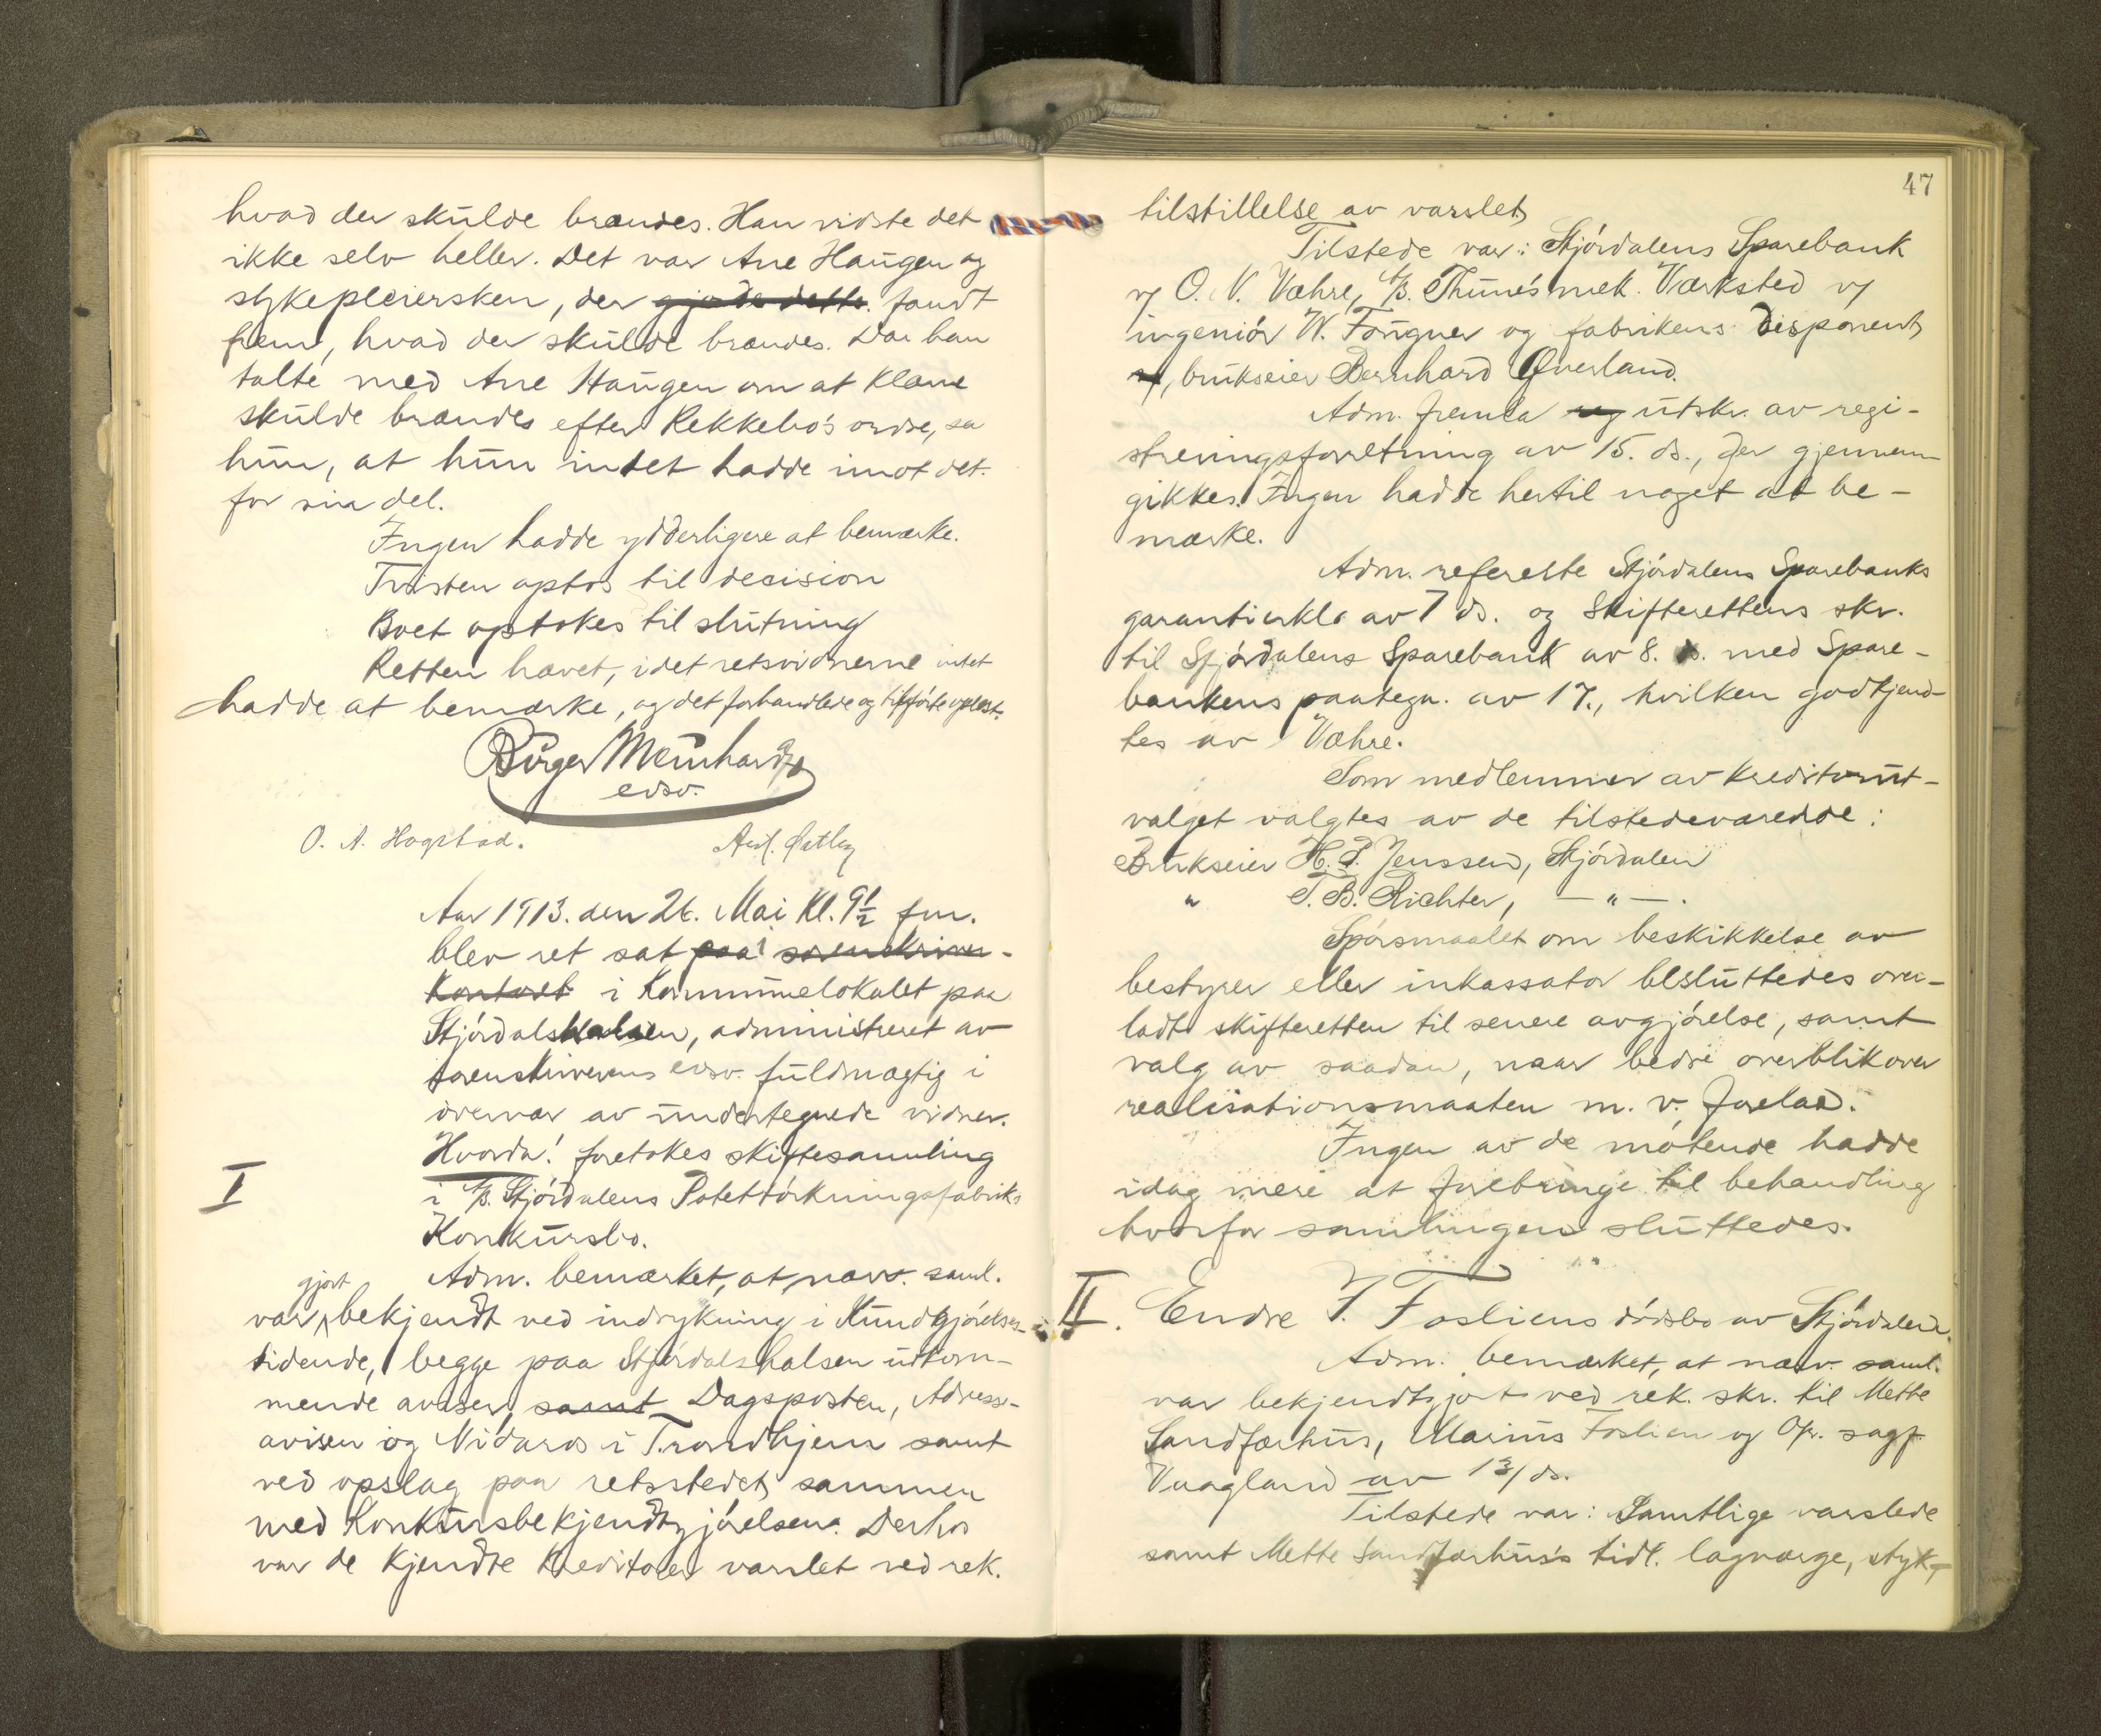 hvad der skulde brændes. Han vidste det
ikke selv heller. Det var Ane Haugen og
sykepleiersken, der gjorde dette. fandt
frem, hvad der skulde brændes. Da han
talte med Ane Haugen om at klærne
skulde brændes efter Rekkebo's ordre, sa
hun, at hun intet hadde imot det.
for sin del.
Ingen hadde ydderligere at bemærke.
Tvisten optos til decision
Boet optokes til slutning
Retten hævet, idet retsvidnerne intet
hadde at bemærke, og det forhandlede og tilførte oplæst.
Birger Meinhardt
edsv.
O. A. Hogstad.
Aar 1913. den 26. Mai Kl. 9½ fm.
blev ret sat paa i sorenskriver-
kontoret i Kommunelokalet paa
Stjórdalshalsen, administreret av
sorenskriverens edsv. fuldmægtig i
overvær av undertegnede vidner.
Hvorda! foretokes skiftesamling
I
i A/B. Stjórdalens Potettórkningsfabriks
Konkursbo.
Adm. bemærket, at nærv. saml.
gjort
var bekjendt ved indrykning i Kundgjórelses-
tidende, begge paa Stjórdalshalsen utkom-
mende aviser, samt Dagsposten, Adresse-
avisen og Nidaros i Trondhjem samt
ved opslag paa retsstedet, sammen
med Konkursbekjendtgjórelsen. Derhos
var de kjendte kreditorer varslet ved rek.
47
tilstillelse av varslet,
Tilstede var: Stjórdalens Sparebank
v/ O. N. Væhre, A/B. Thune's mek. Værksted v/
ingeniór W. Fougner og fabrikens disponent,
brukseier Bernhard Øverland.
Adm. fremla reg utskr. av regi-
streringsforretning av 15. ds., der gjennem-
gikkes. Ingen hadde hertil noget at be-
mærke.
Adm. refererte Stjórdalens Sparebanks
garantierkl. av 7 ds. og Skifterettens skr.
til Stjórdalens Sparebank av 8. ds. med Spare-
bankens paategn. av 17., hvilken godkjend-
tes av Væhre.
Som medlemmer av kreditorut-
valget valgtes av de tilstedeværende:
Brukseier H. P. Jenssen, Stjórdalen
" T. B. Richter, — " —.
Spórsmaalet om beskikkelse av
bestyrer eller inkassator besluttedes over-
ladt skifteretten til senere avgjórelse, samt
valg av saadan, naar bedre overblik over
realisationsmaaten m. v. forelaa.
Ingen av de mótende hadde
idag mere at frembringe til behandling
hvorfor samlingen sluttedes.
II. Endre J. Fosliens dódsbo av Stjórdalen.
Adm. bemærket, at nærv. saml.
var bekjendtgjort ved rek. skr. til Mette
Sandfærhus, Marius Foslien og Opr. sagf.
Vaagland av 13/ ds.
Tilstede var: Samtlige varslede
samt Mette Sandfærhus's tidl. lagværge,